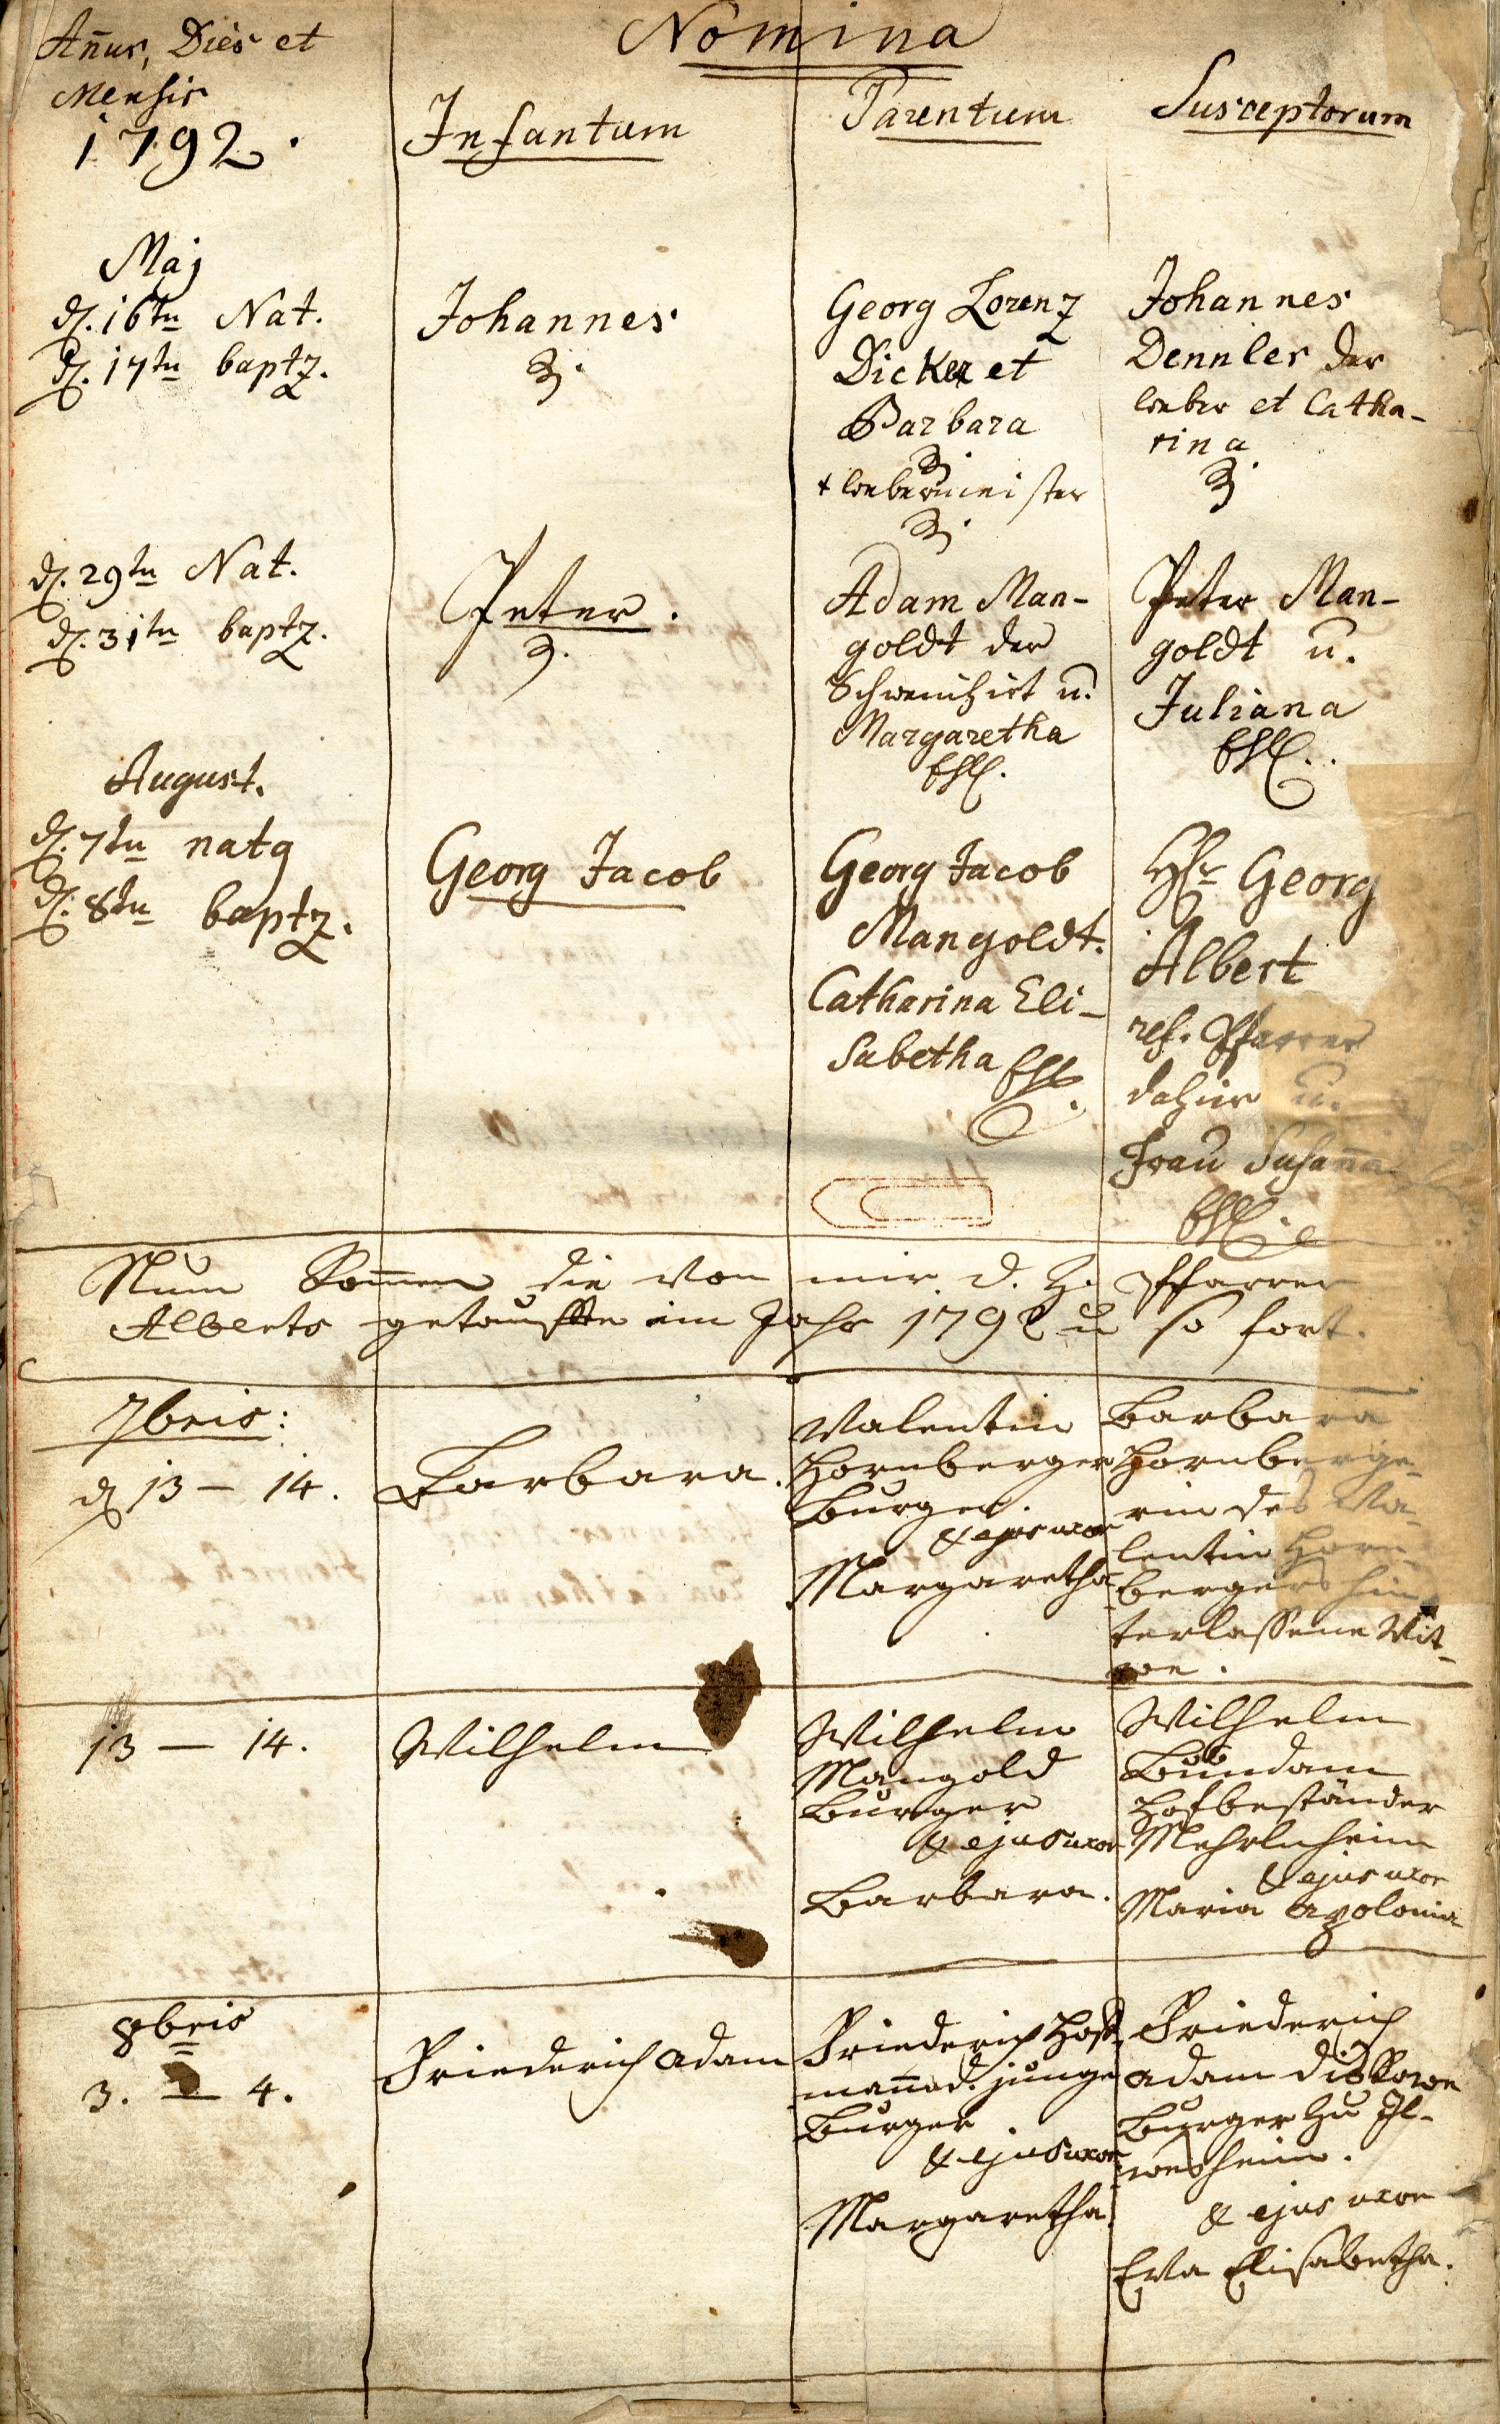 Nomina
Añus, Dies et
Mensis
1792.
Infantum
Parentum
Susceptorum
Maj
d. 16tn Nat.
d. 17tn baptz.
Johannes
Georg Lorenz
Dicker et
Barbara
+ Webermeister
Johannes
Dennler der
Weber et Catha-
rina
d. 29tn Nat.
d. 31tn baptz.
Peter.
Adam Man-
goldt der
Schweinhirt u.
Margaretha
Ehl.
Peter Man-
goldt u.
Juliana
Ehl.
August.
d. 7tn natg
d. 8tn baptz.
Georg Jacob
Georg Jacob
Mangoldt.
Catharina Eli-
sabetha Ehl.
Hr Georg
Albert
ref. Pfarrer
dahier u.
Frau Susaña
Ehl.
Nun Kom̄en die von mir d. H. Pfarrer
Alberts getauffte im Jahr 1792 u so fort.
7bris:
d 13 — 14.
Barbara.
Valentin
Hornberger
Burger.
& ejus uxor
Margaretha
Barbara
Hornberge-
rin des Va-
lentin Horn-
bergers hin-
terlassene Wit-
we.
13 — 14.
Wilhelm
Wilhelm
Mangold
Burger
& ejus uxor
Barbara.
Wilhelm
Bundam
Hofbeständer
Mehrlnheim
& ejus uxor
Maria Apolonia
8bris
3. — 4.
Friederich Adam
Friederich Hoff-
mañ d. junge
Burger.
& ejus uxor
Margaretha.
Friederich
Adam
Burger zu Il-
wesheim.
& ejus uxor
Eva Elisabetha.